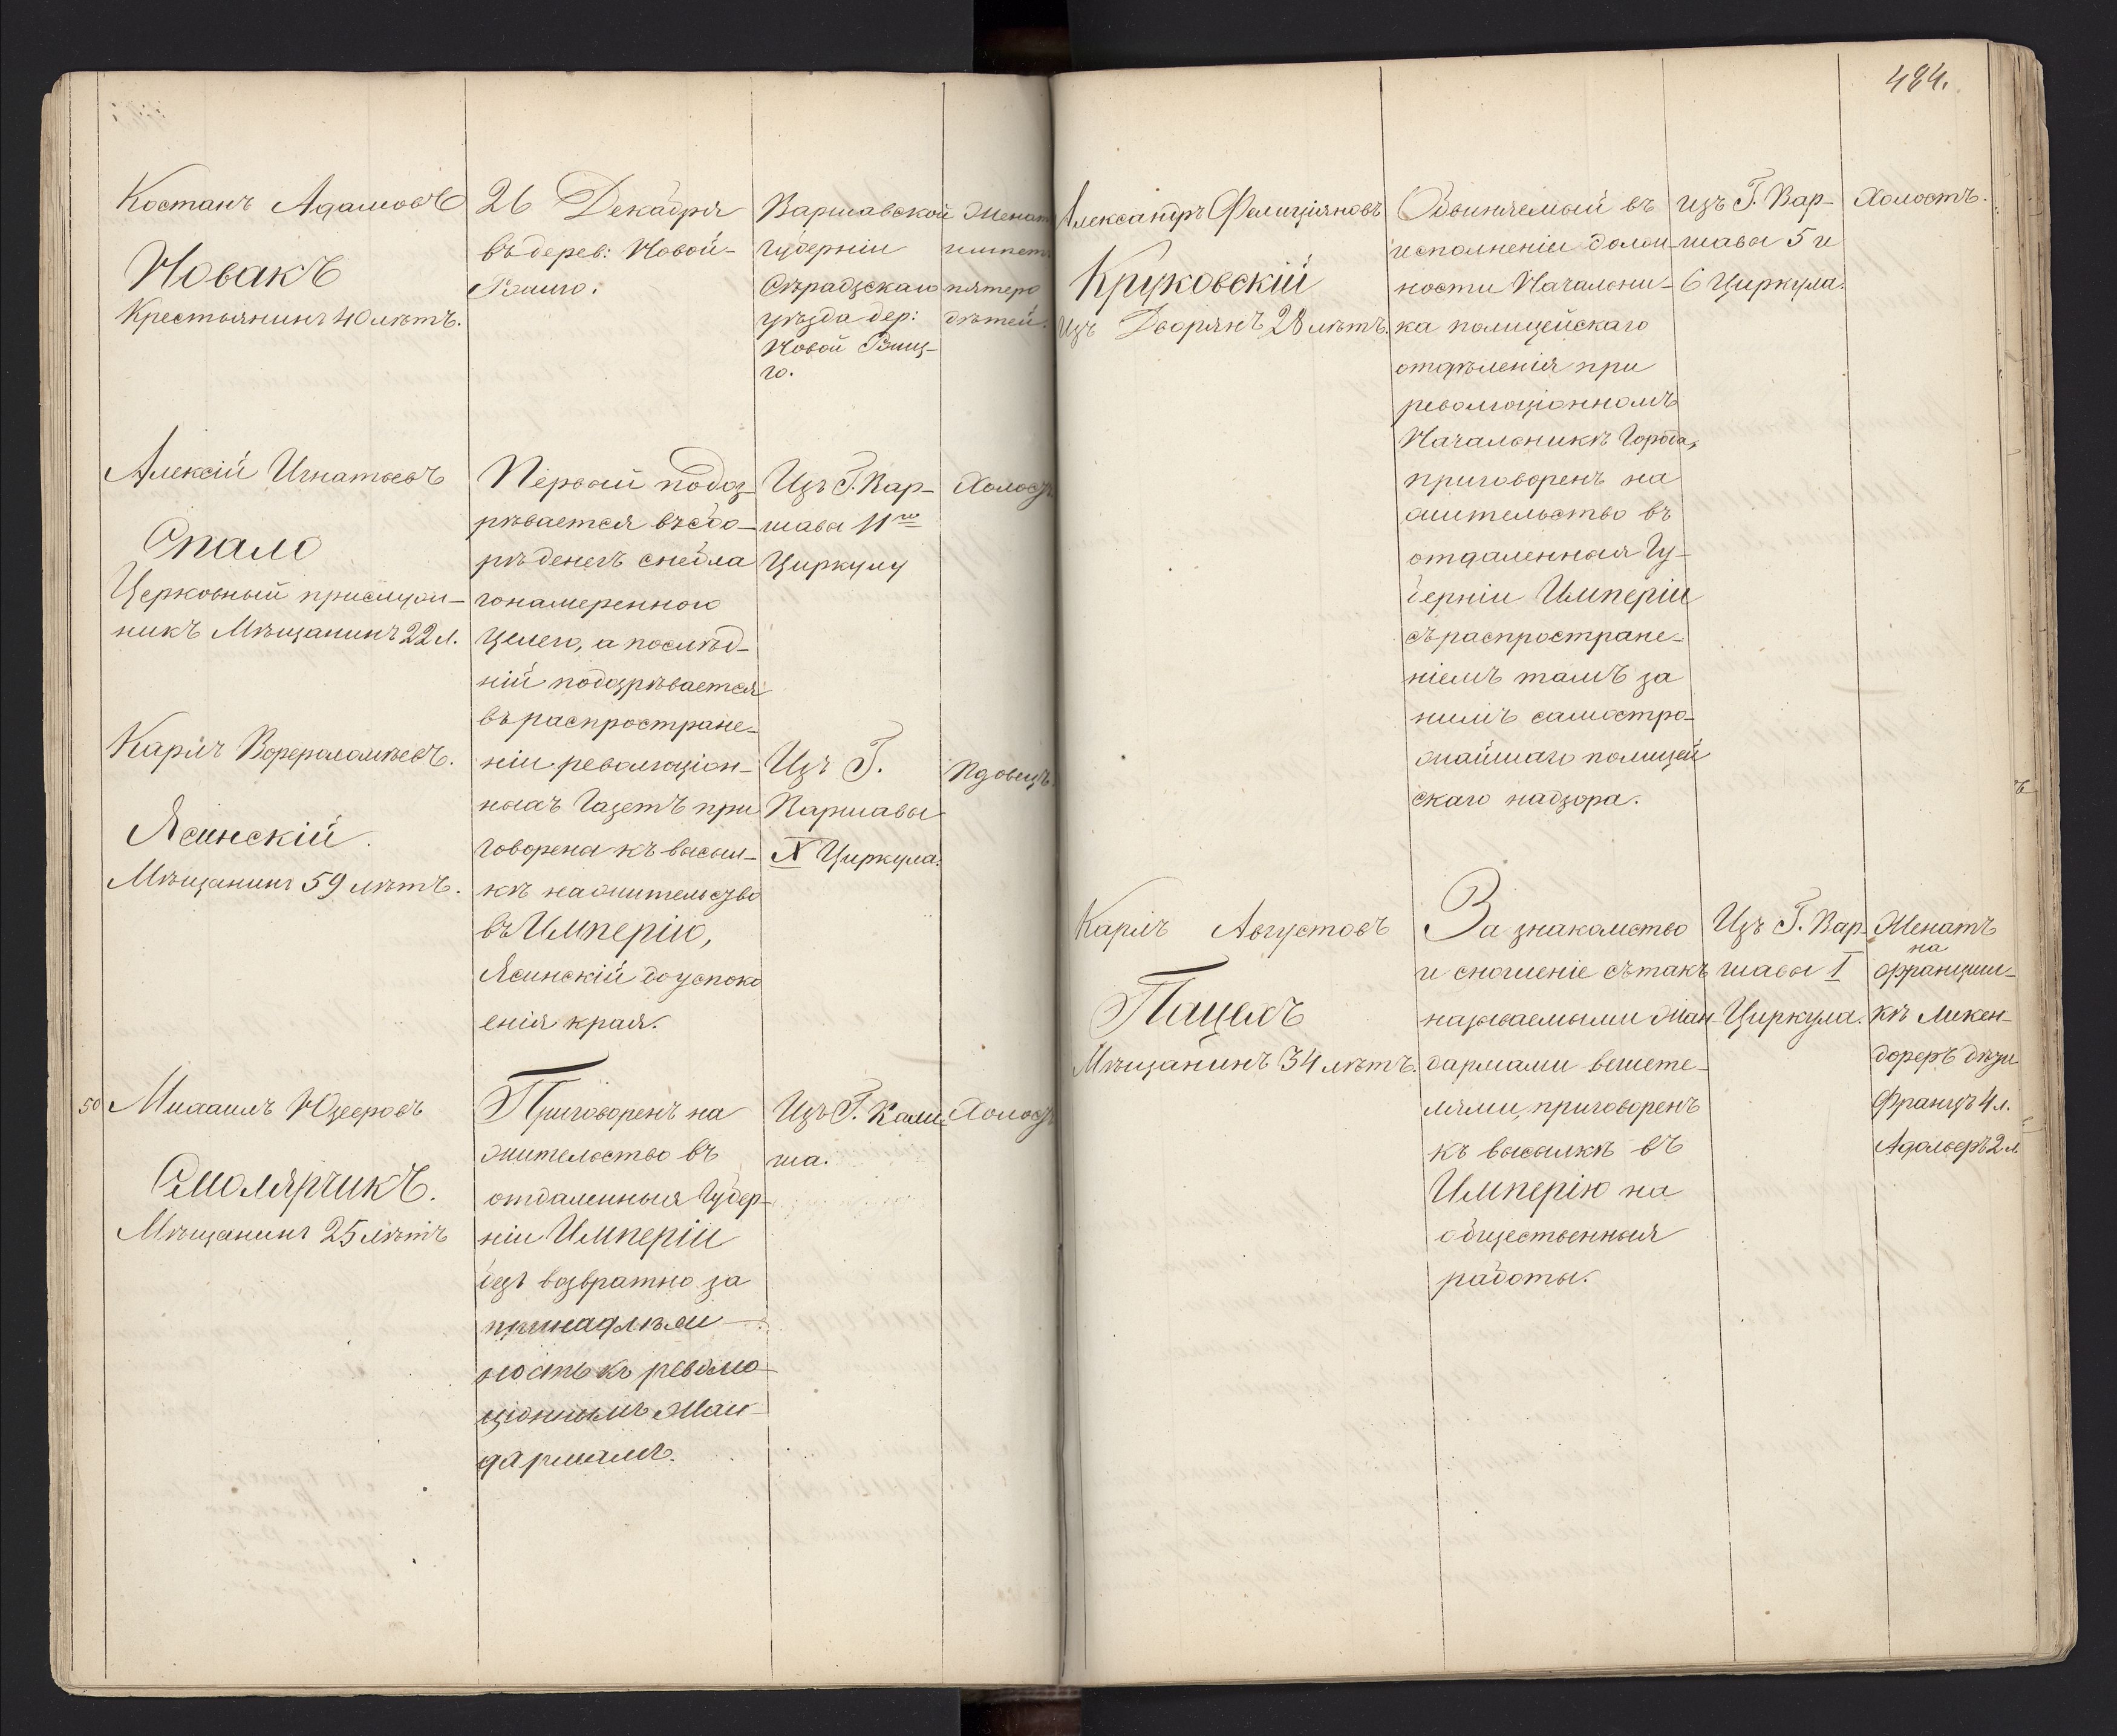 484.
Костанъ Адамовъ
Новакъ
Крестьянинъ 40 лѣтъ.
26 Декабря
въ дерев: Новой-
Варшавской
Губерніи
Сѣрадзскаго
уѣзда дер:
Новой
го.
Женатъ
имѣетъ
пятеро
дѣтей.
Алексій Игнатьевъ
Опало
Церковный прислуж-
никъ Мѣщанинъ 22 л.
Первый подоз-
рѣвается въ сбо-
рѣ денегъ с небла
гонамеренною
целего, а послѣд-
ній подозрѣвается
въ распростране-
ніи революціон-
ныхъ Газетъ при
говорена къ высыл-
кѣ на жительство
въ Имперію,
Ясинскій до успоко
енія края.
Изъ Г. Вар-
шавы 11го
Циркулу
Холостъ
Карлъ
Ясинскій.
Мѣщанинъ 59 лѣтъ.
Изъ Г.
Варшавы
X Циркула.
Вдовецъ.
50 Михаилъ Юзефовъ
Смолярчикъ.
Мѣщанинъ 25 лѣтъ
Приговоренъ на
жительство въ
отдаленныя Губер-
ніи Имперіи
безъ возвратно за
принадлѣж-
ность къ револю-
ціоннымъ Жан-
дармамъ.
Изъ Г. Кали-
ша.
Холостъ
Александръ Фелиціяновъ
Круковскій
Изъ Дворянъ 28 лѣтъ.
Обвиняемый въ
исполненіи долж-
ности Начальни-
ка полицейскаго
отдѣленія при
революціонномъ
Начальникѣ Города,
приговоренъ на
жительство въ
отдаленныя Гу-
берніи Имперіи
съ распростране-
ніемъ тамъ за
нимъ самостро-
жайшаго полицей
скаго надзора.
изъ Г. Вар-
шавы 5 и
6 Циркула.
Холостъ.
Карлъ Августовъ
Пацехъ
Мѣщанинъ 34 лѣтъ.
За знакомство
и сношеніе съ такъ
называемыми жан-
дармами вешете-
лями, приговоренъ
къ высылкѣ въ
Имперію на
общественныя
работы.
Изъ Г. Вар-
шавы I
Циркула.
Женатъ
на
Франциш-
кѣ
Францъ 4 л.
2 л